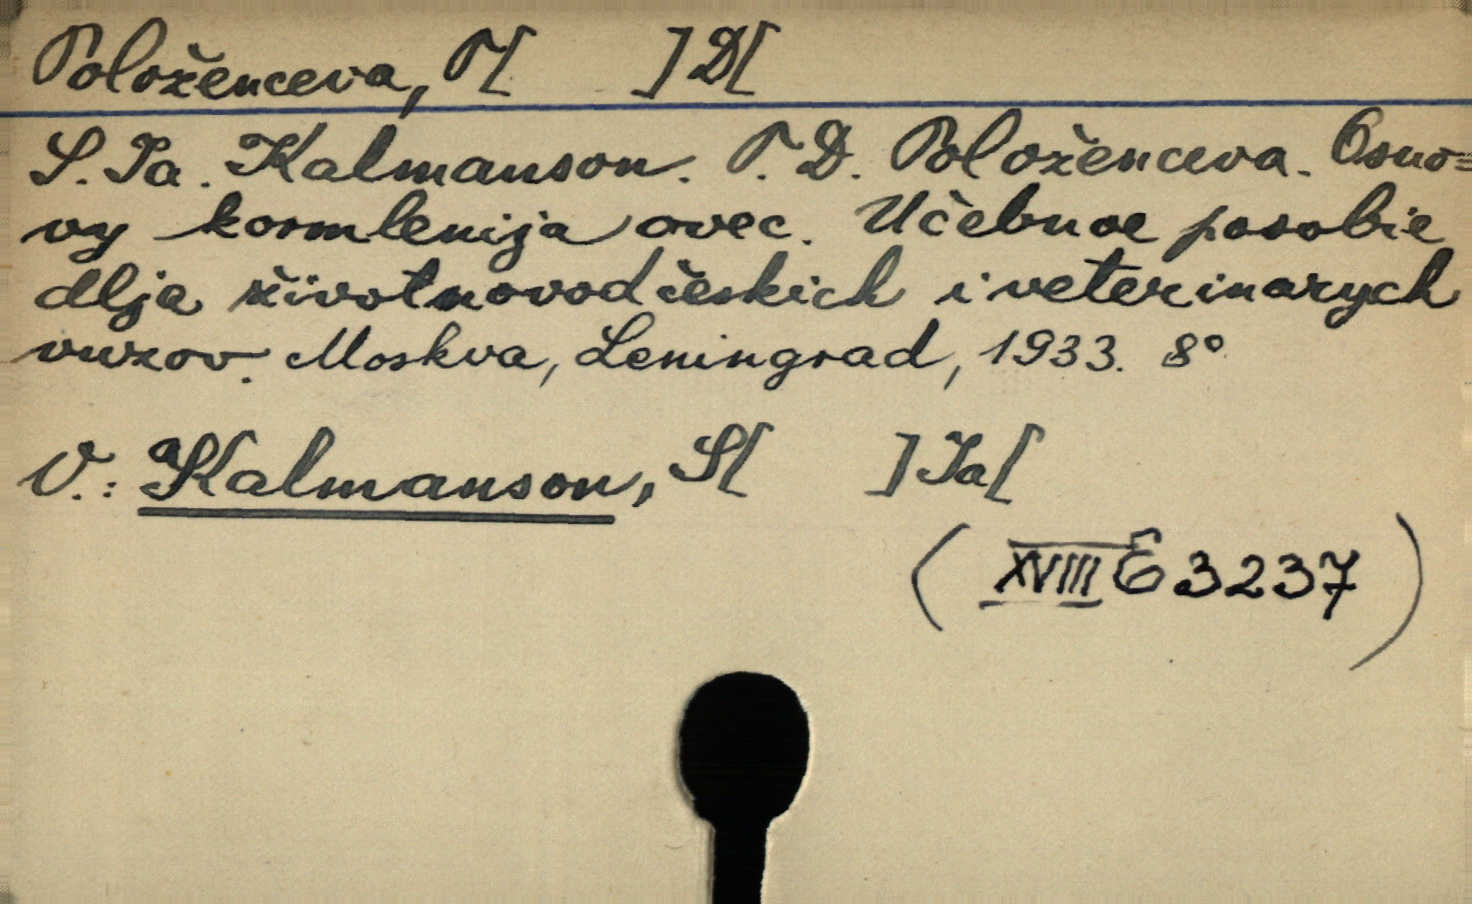 Položenceva, P[ ]D[
S. Ja. Kalmanson. P. D. Položenceva. Osno=
vy kormlenija ovec. Učebnoe posobie
dlja životnovodčeskich i veterinarych
vuzov. Moskva, Leningrad, 1933. 8°
V.: Kalmanson, S[ ]Ja[
(XVIII E 3237)